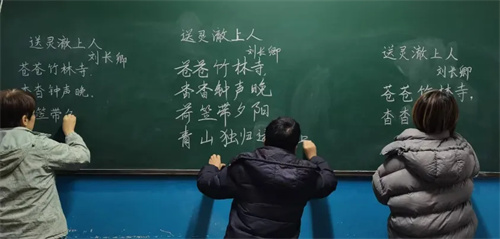 送灵澈上人
刘长卿
苍苍竹林寺
杳杳钟声晚,
笠带夕
送灵澈上人
刘长卿
苍苍竹林寺
杳杳钟声晚
荷笠带夕阳
青山独归远
送灵澈上人
刘长卿
苍苍竹林寺,
杳杳